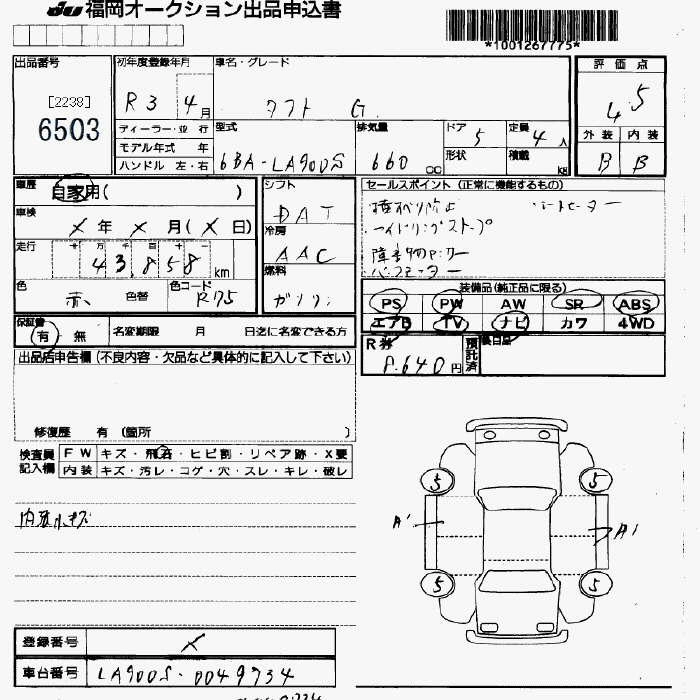 JU 福岡オークション出品申込書
*1001267775*
出品番号 [2238] 6503
初年度登録年月 R3 4月
車名・グレード タフト G
評価点 4.5
外装 内装
B B
ディーラー・並行
モデル年式 年
ハンドル 左・右
型式 6BA-LA900S
排気量 660 cc
ドア 5
定員 4人
形状
積載 kg
車歴 自家用( )
車検 × 年 × 月(× 日)
走行 十 万 千 百 十 一
43,858 km
色 赤 色替 色コード R75
シフト DAT
冷房 AAC
燃料 ガソリン
セールスポイント (正常に機能するもの)
シートヒーター
アイドリングストップ
装備品(純正品に限る)
PS PW AW SR ABS
エアB TV ナビ カワ 4WD
保証書 有 無
名変期限 月 日迄に名変できる方
R券 8.640円
預託済
後日品
出品店申告欄(不良内容・欠品など具体的に記入して下さい)
修復歴 有 (箇所 )
検査員記入欄
FW キズ・飛石・ヒビ割・リペア跡・X要
内装 キズ・汚レ・コゲ・穴・スレ・キレ・破レ
内装小キズ
5 5
A' A1
5 5
登録番号 ×
車台番号 LA900S-0049734